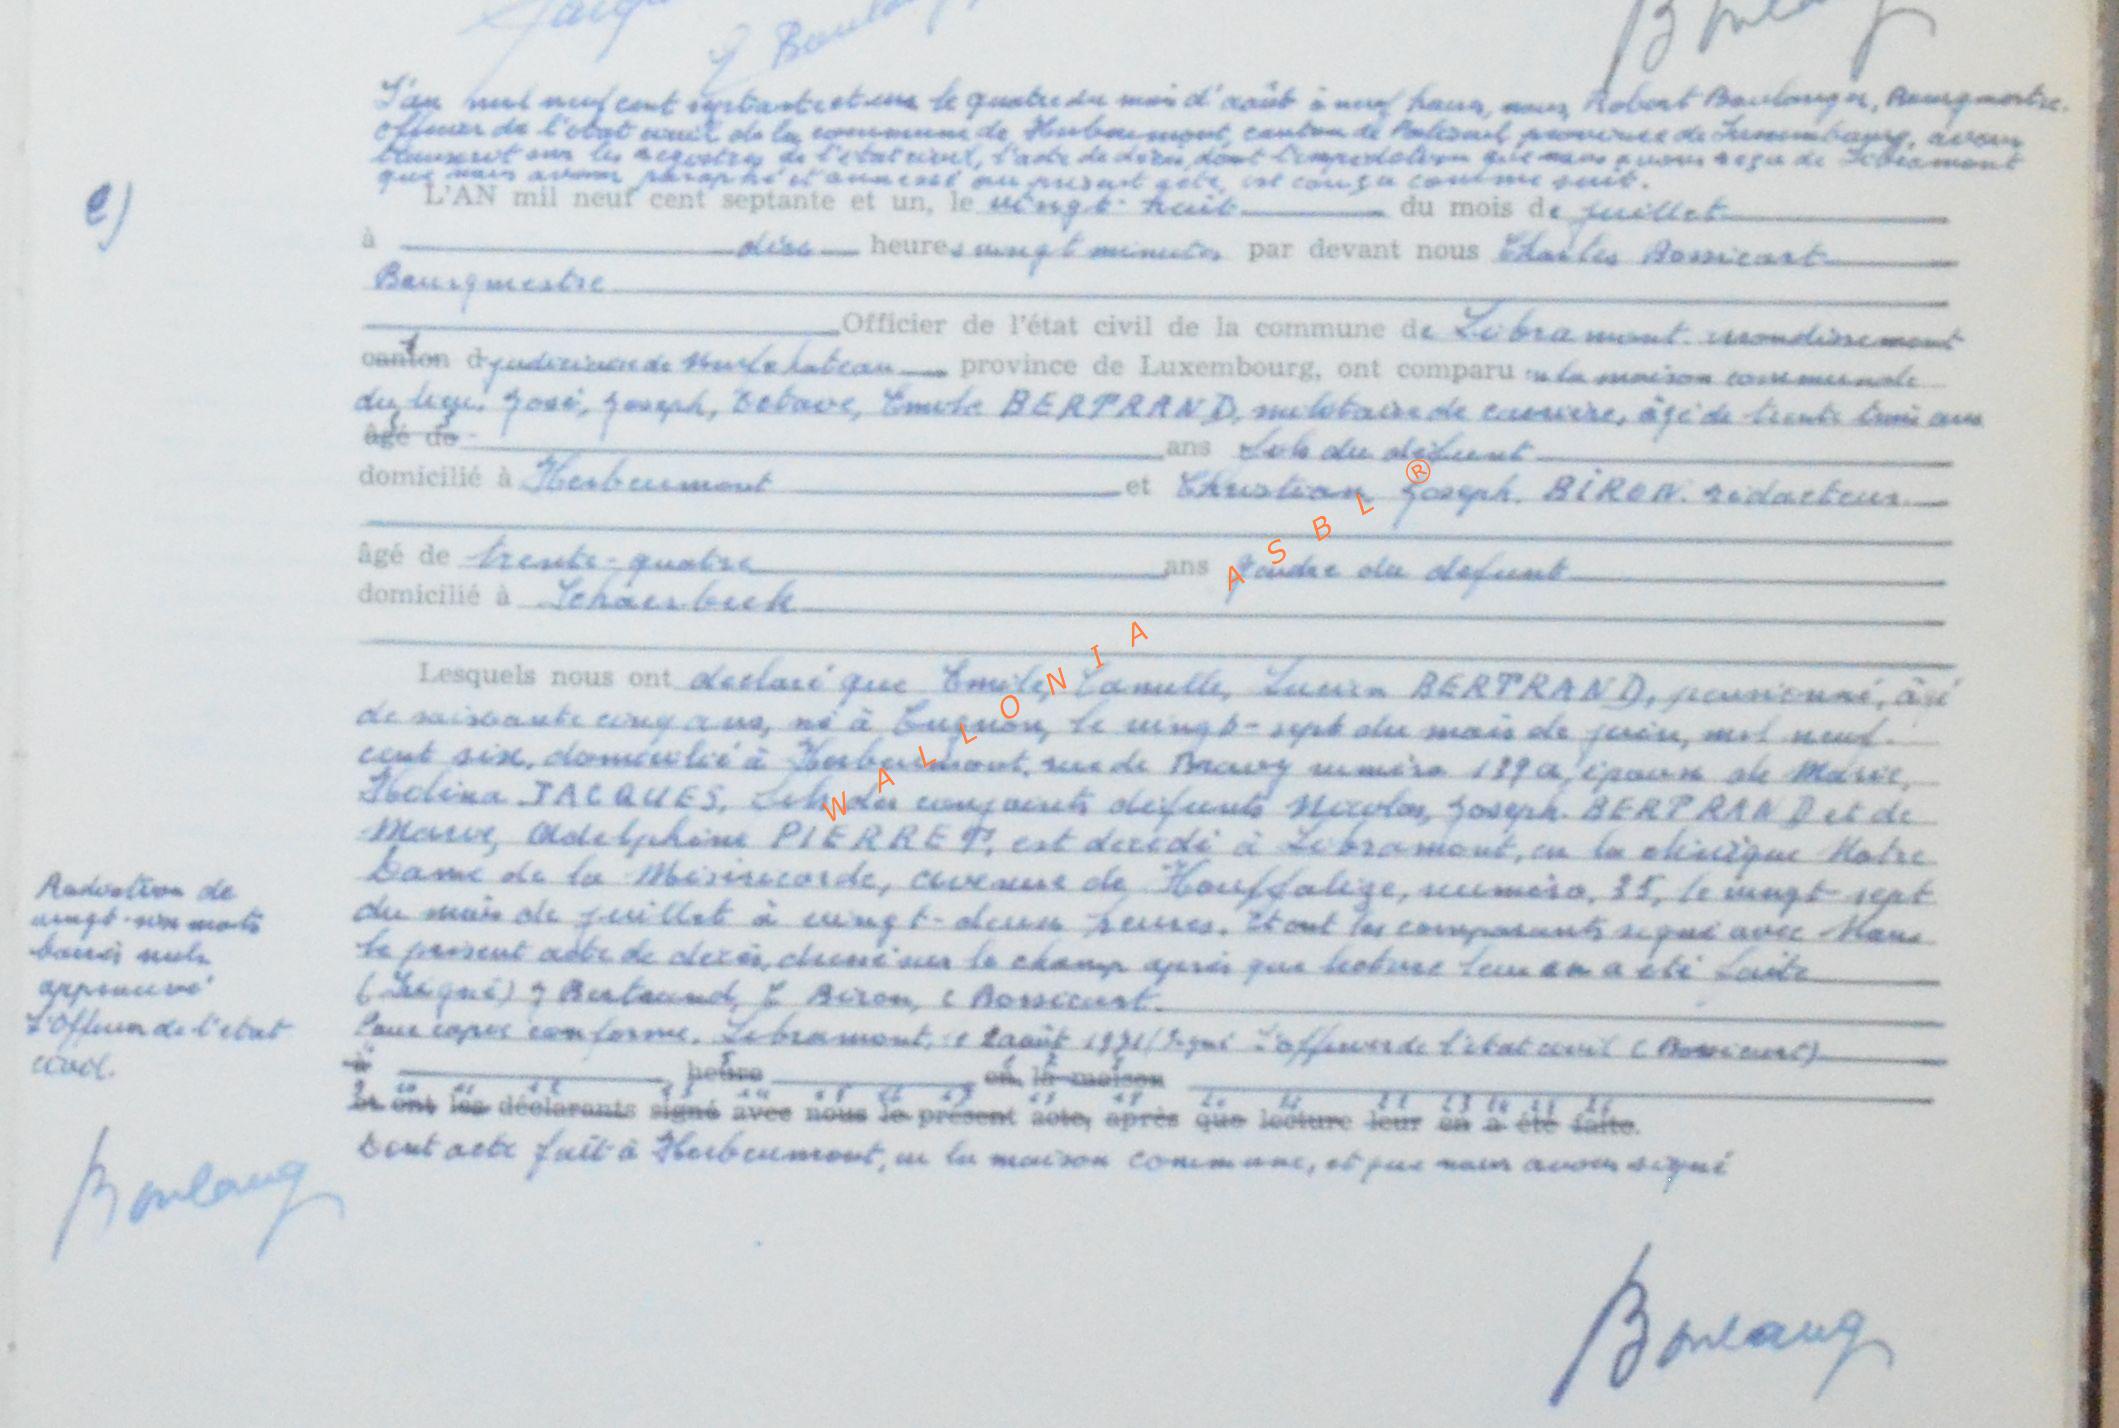 L'an mil neuf cent septante et un le quatre du mois d'août à neuf heures, nous, Robert Boulanger, Bourgmestre,
officier de l'état civil de la commune de Herbeumont, canton de Paliseul, province de Luxembourg, avons
transcrit sur les registres de l'état civil, l'acte de décès, dont l'expédition que nous avons reçu de Libramont
que nous avons paraphé et annexé au présent acte, est conçu comme suit.
e)
L'AN mil neuf cent septante et un, le vingt-huit du mois de juillet
à dix heures vingt minutes par devant nous Charles Bossicart
Bourgmestre
Officier de l'état civil de la commune de Libramont arrondissement
canton d judiciaire de Neufchateau province de Luxembourg, ont comparu en la maison communale
du lieu, José, Joseph, Octave, Emile BERTRAND, militaire de carrière, âgé de trente trois ans
âgé de ans fils du défunt
domicilié à Herbeumont et Christian Joseph BIRON rédacteur
âgé de trente-quatre ans gendre du défunt
domicilié à Schaerbeek
Lesquels nous ont déclaré que Emile, Camille, Lucien BERTRAND, pensionné, âgé
de soixante cinq ans, né à Cugnon, le vingt-sept du mois de juin, mil neuf
cent six, domicilié à Herbeumont, rue de Bravy numéro 139a, époux de Marie,
JACQUES, fils des conjoints défunts Nicolas, Joseph BERTRAND et de
Marie, Adelphine PIERRET, est décédé à Libramont, en la clinique Notre
Dame de la Miséricorde, avenue de Houffalize, numéro, 35, le vingt sept
du mois de juillet à vingt-deux heures. Et ont les comparants signé avec Nous
le présent acte de décès, dressé sur le champ après que lecture leur en a été faite
(Signé) J Bertrand, C Biron, C Bossicart.
Pour copie conforme, Libramont, le 2 août 1971 (Signé L'officier de l'état civil (Bossicart)
à heure en la maison
Et ont les déclarants signé avec nous le présent acte, après que lecture leur en a été faite.
Dont acte fait à Herbeumont, en la maison commune, et que nous avons signé
Radiation de
vingt-six mots
barrés nuls
approuvé
L'Officier de l'état
civil.
Boulang
Boulang